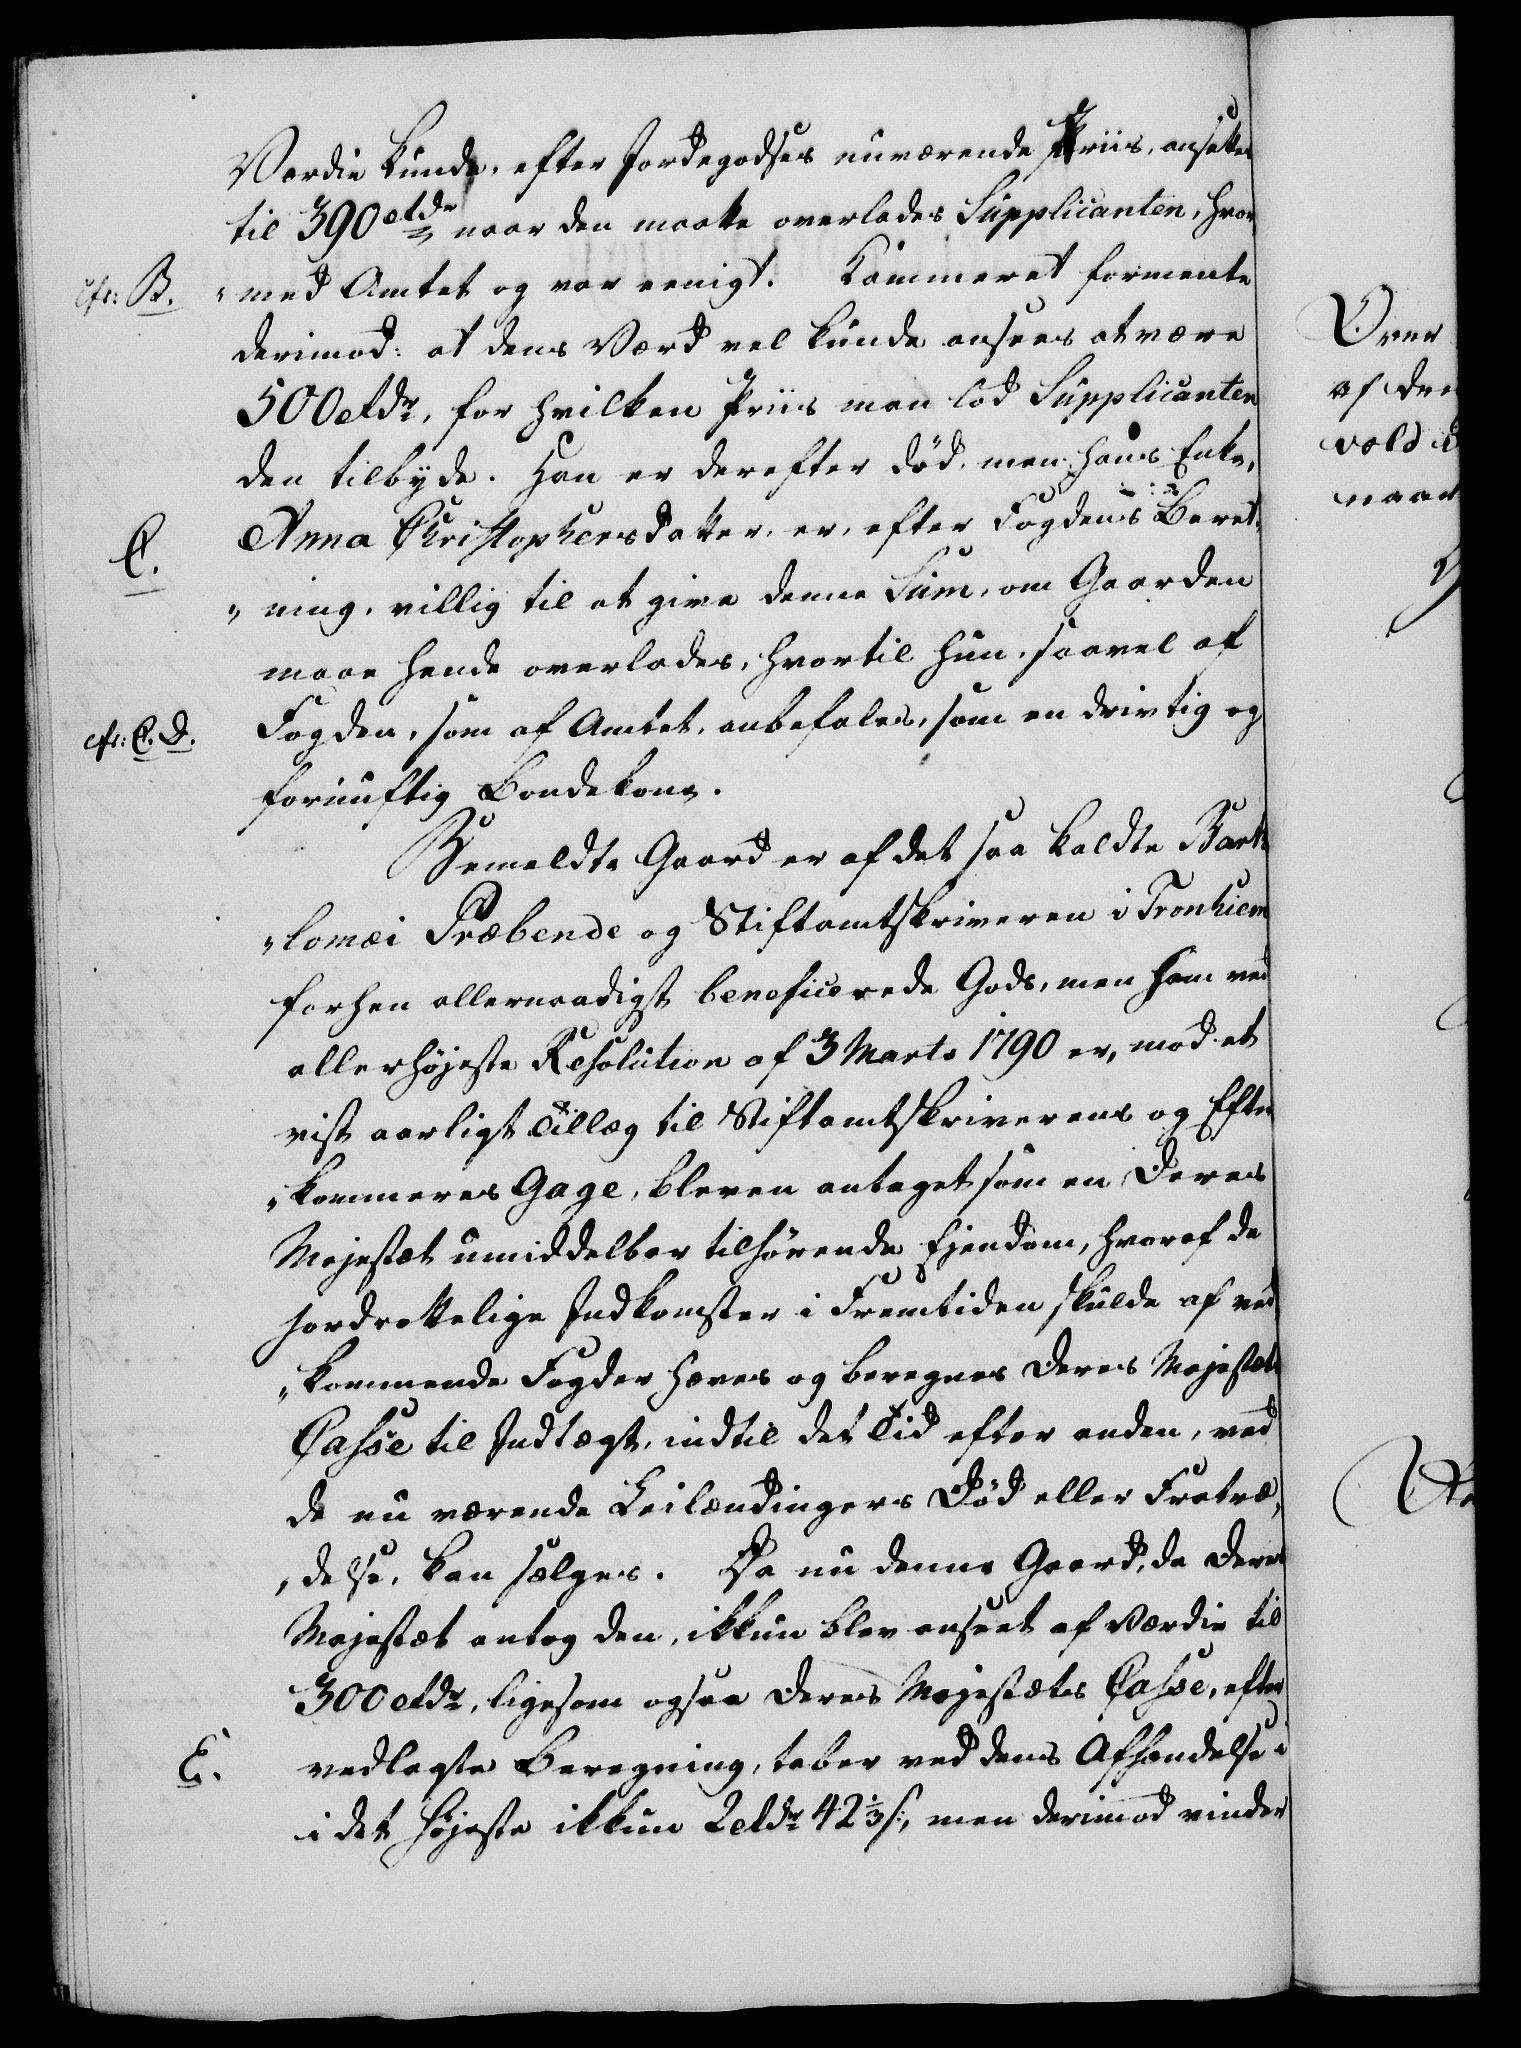 Værdie kunde, efter Jordegodses nuværende Priis, ansettes
til 390 rdr naar den maatte overlades Supplicanten, hvor
cfr: B. „med Amtet og var eenigt. Kammeret formente
derimod: at dens Værd vel kunde ansees at være
500 rdr, for hvilken Priis man lod Supplicanten
den tilbyde. Han er derefter død, men hans Enke,
C. Anna Christophersdatter, er, efter Fogdens Beret„
„ning, villig til at give denne Sum, om Gaarden
maae hende overlades, hvortil hun, saavel af
cfr: C. D. Fogden, som af Amtet, anbefales, som en drivtig og
fornuftig Bondekone.
Bemeldte Gaard er af det saa kaldte Barto„
„lomæi Præbende og Stiftamtskriveren i Tronhiem
forhen allernaadigst beneficerede Gods, men som ved
allerhøjeste Resolution af 3 Marts 1790 er, mod et
vist aarligt Tillæg til Stiftamtskriverens og Efter„
„kommeres Gage, bleven antaget som en Deres
Majestæt umiddelbar tilhørende Ejendom, hvoraf de
Jordrottelige Indkomster i Fremtiden skulde af ved„
„kommende Fogder hæves og beregnes Deres Majestæts
Casse til Indtægt, indtil det Tid efter anden, ved
de nu værende Leilændingers Død eller Fratræ„
„delse, kan sælges. Da nu denne Gaard, da Deres
Majestæt antog den, ikkun blev anseet af Værdie til
300 rdr, ligesom ogsaa Deres Majestæts Casse, efter
E. vedlagte Beregning, taber ved dens Afhændelse
i det højeste ikkun 2 rdr 42 1/3 s:, men derimod vinder
Over
af den
vold
naar